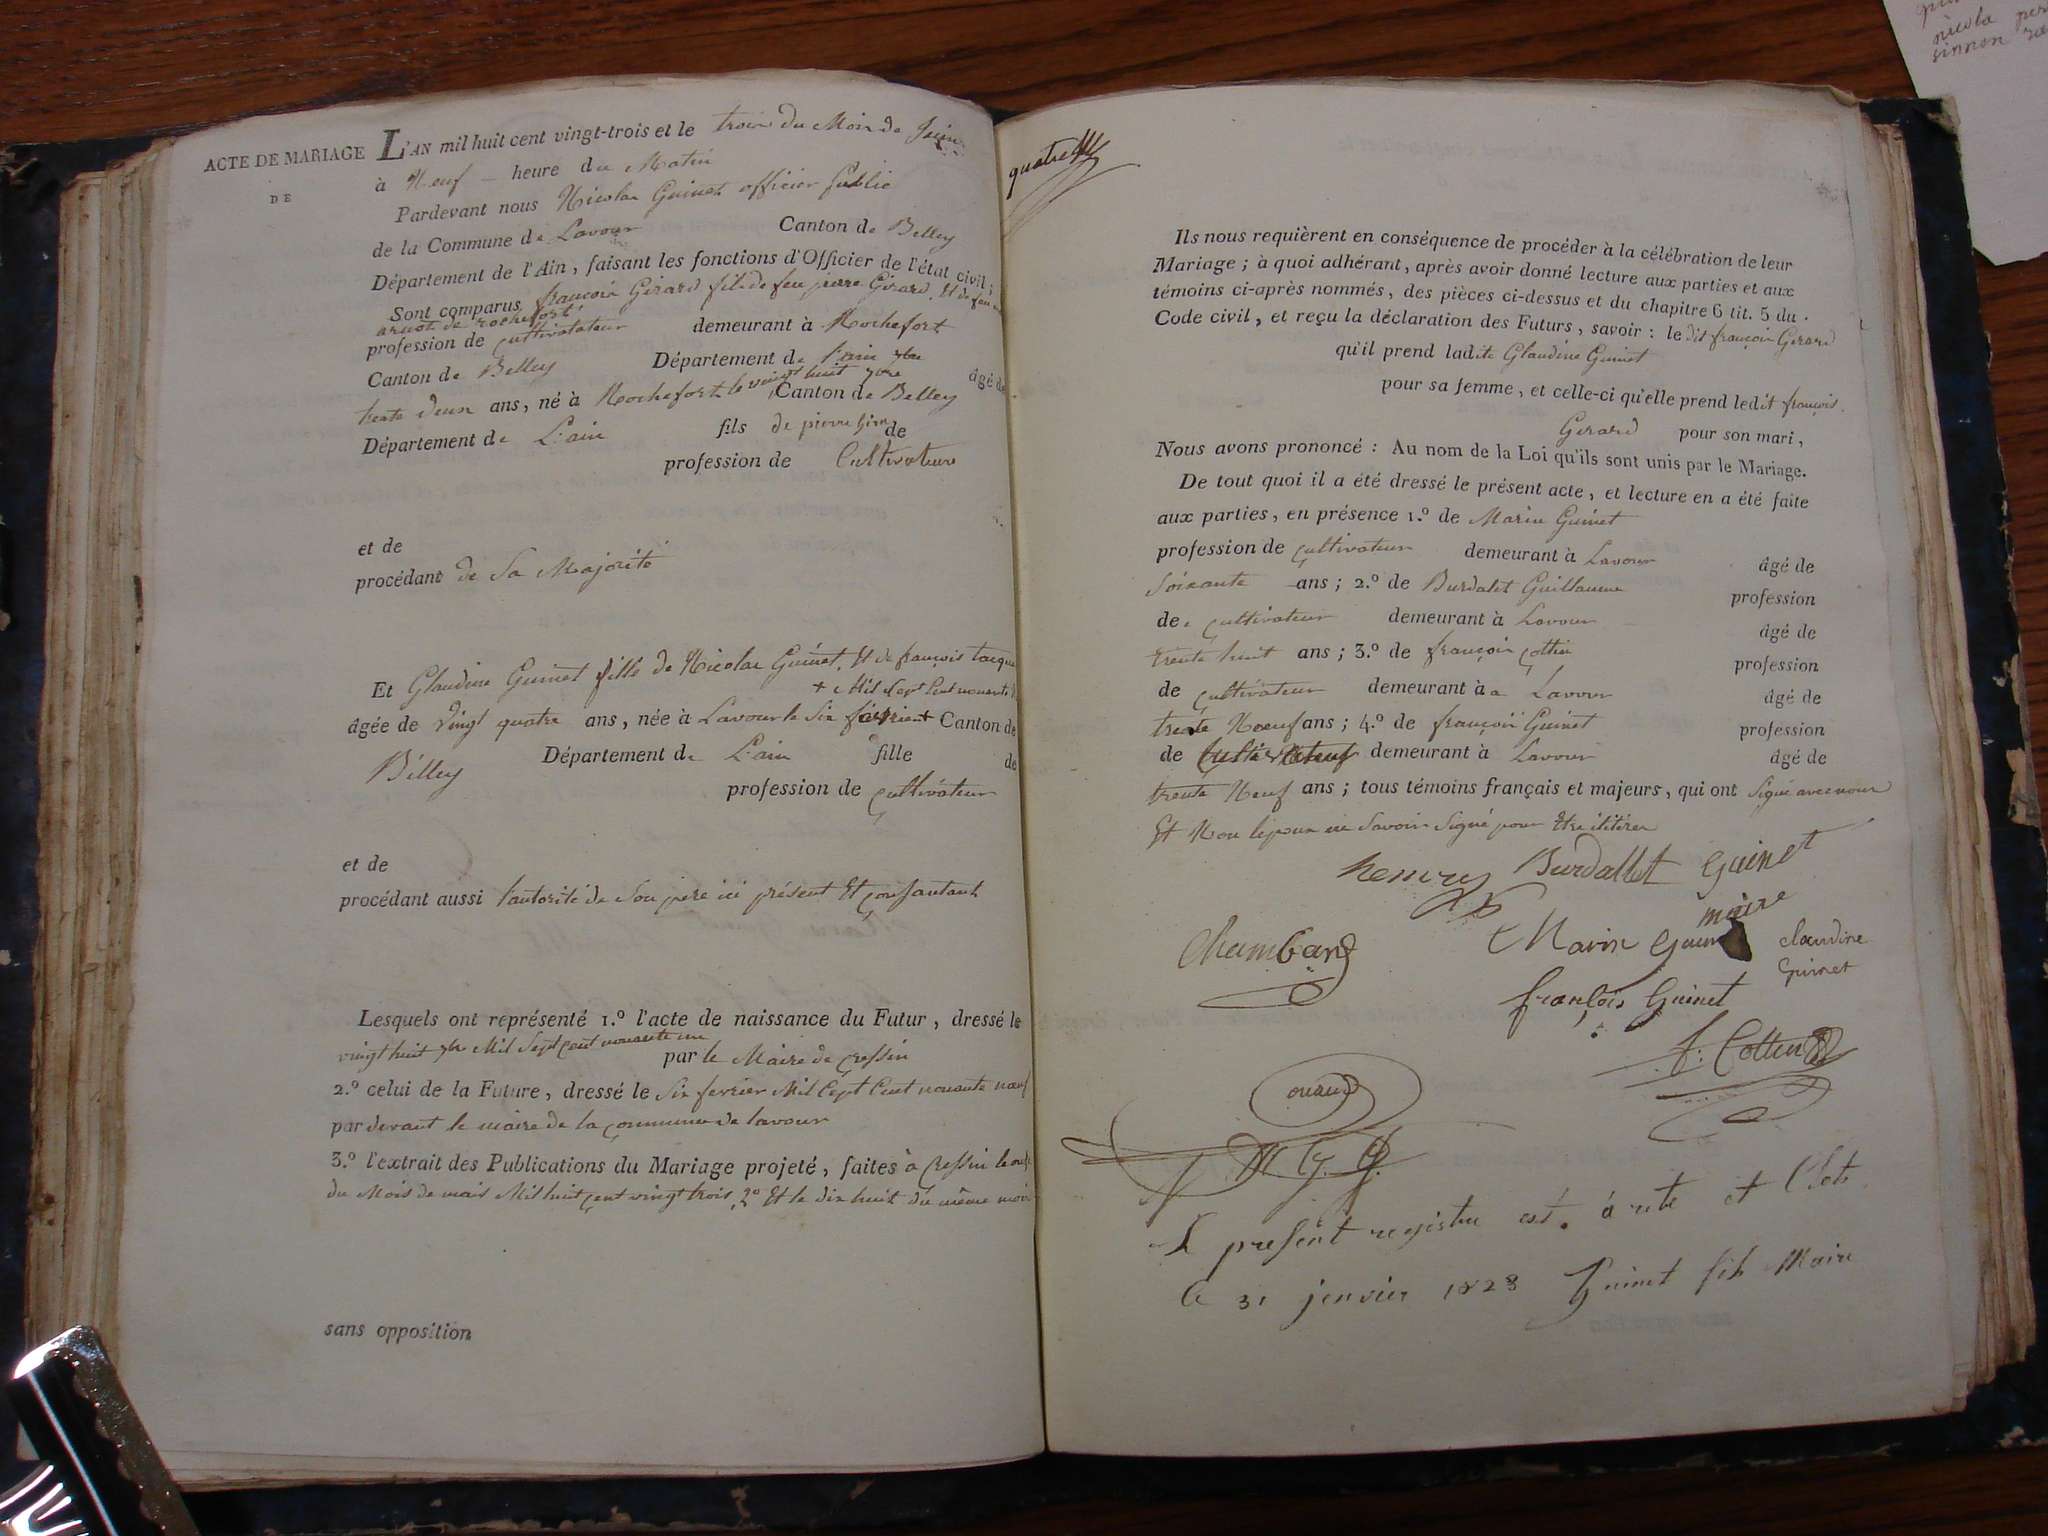 ACTE DE MARIAGE
DE
L'AN mil huit cent vingt-trois et le trois du Mois de Juin
à Neuf heure du Matin
Pardevant nous Nicolas Guinet officier public
de la Commune de Lavour Canton de Belley
Département de l'Ain, faisant les fonctions d'Officier de l'état civil;
Sont comparus françois Gerard fils de feu pierre Gerard, Et de feu
de rochefort
profession de cultivatateur demeurant à Rochefort
Canton de Belley Département de l'ain âgé de
trente deux ans, né à Rochefort le vingt huit 7bre Canton de Belley
Département de L'ain fils de pierre de
profession de Cultivateur
et de
procédant de Sa Majorité
Et Glaudine Guinet fille de Nicolas Guinet, Et de françois
+ Mil Sept Cent nonante
âgée de Vingt quatre ans, née à Lavour le Six février + Canton de
Belley Département de L'ain fille de
profession de cultivateur
et de
procédant aussi l'autorité de Son pere ici présent Et consantant
Lesquels ont représenté 1.º l'acte de naissance du Futur, dressé le
vingt huit 7bre Mil Sept cent nonante un
par le Maire de Cressin
2.º celui de la Future, dressé le Six fevrier Mil Sept Cent nonante neuf
par devant le maire de la commune de lavour
3.º l'extrait des Publications du Mariage projeté, faites à Cressin le onze
du Mois de mais Mil huit cent vingt trois, 2º Et le dix huit du même mois
sans opposition
quatre
Ils nous requièrent en conséquence de procéder à la célébration de leur
Mariage; à quoi adhérant, après avoir donné lecture aux parties et aux
témoins ci-après nommés, des pièces ci-dessus et du chapitre 6 tit. 5 du
Code civil, et reçu la déclaration des Futurs, savoir: le dit françois Gerard
qu'il prend ladite Glaudine Guinet
pour sa femme, et celle-ci qu'elle prend ledit françois
Gerard pour son mari,
Nous avons prononcé: Au nom de la Loi qu'ils sont unis par le Mariage.
De tout quoi il a été dressé le présent acte, et lecture en a été faite
aux parties, en présence 1.º de Marin Guinet
profession de cultivateur demeurant à Lavour âgé de
Soixante ans; 2.º de Burdalet Guillaume profession
de cultivateur demeurant à Lavour âgé de
trente huit ans; 3.º de françois Cottin profession
de cultivateur demeurant à a Lavour âgé de
trente Noeuf ans; 4.º de françois Guinet profession
de Cultivateur demeurant à Lavour âgé de
trente Neuf ans; tous témoins français et majeurs, qui ont Signé avec nous
Et Non lepoux ne Savoir Signé pour Etre ilitéré
henry Burdallet Guinet
maire
Chambard Marin Guinet claudine
Guinet
françois Guinet
f: Cottin
Le present registre est. arete et Clots
le 31 janvier 1823 Guinet fils Maire